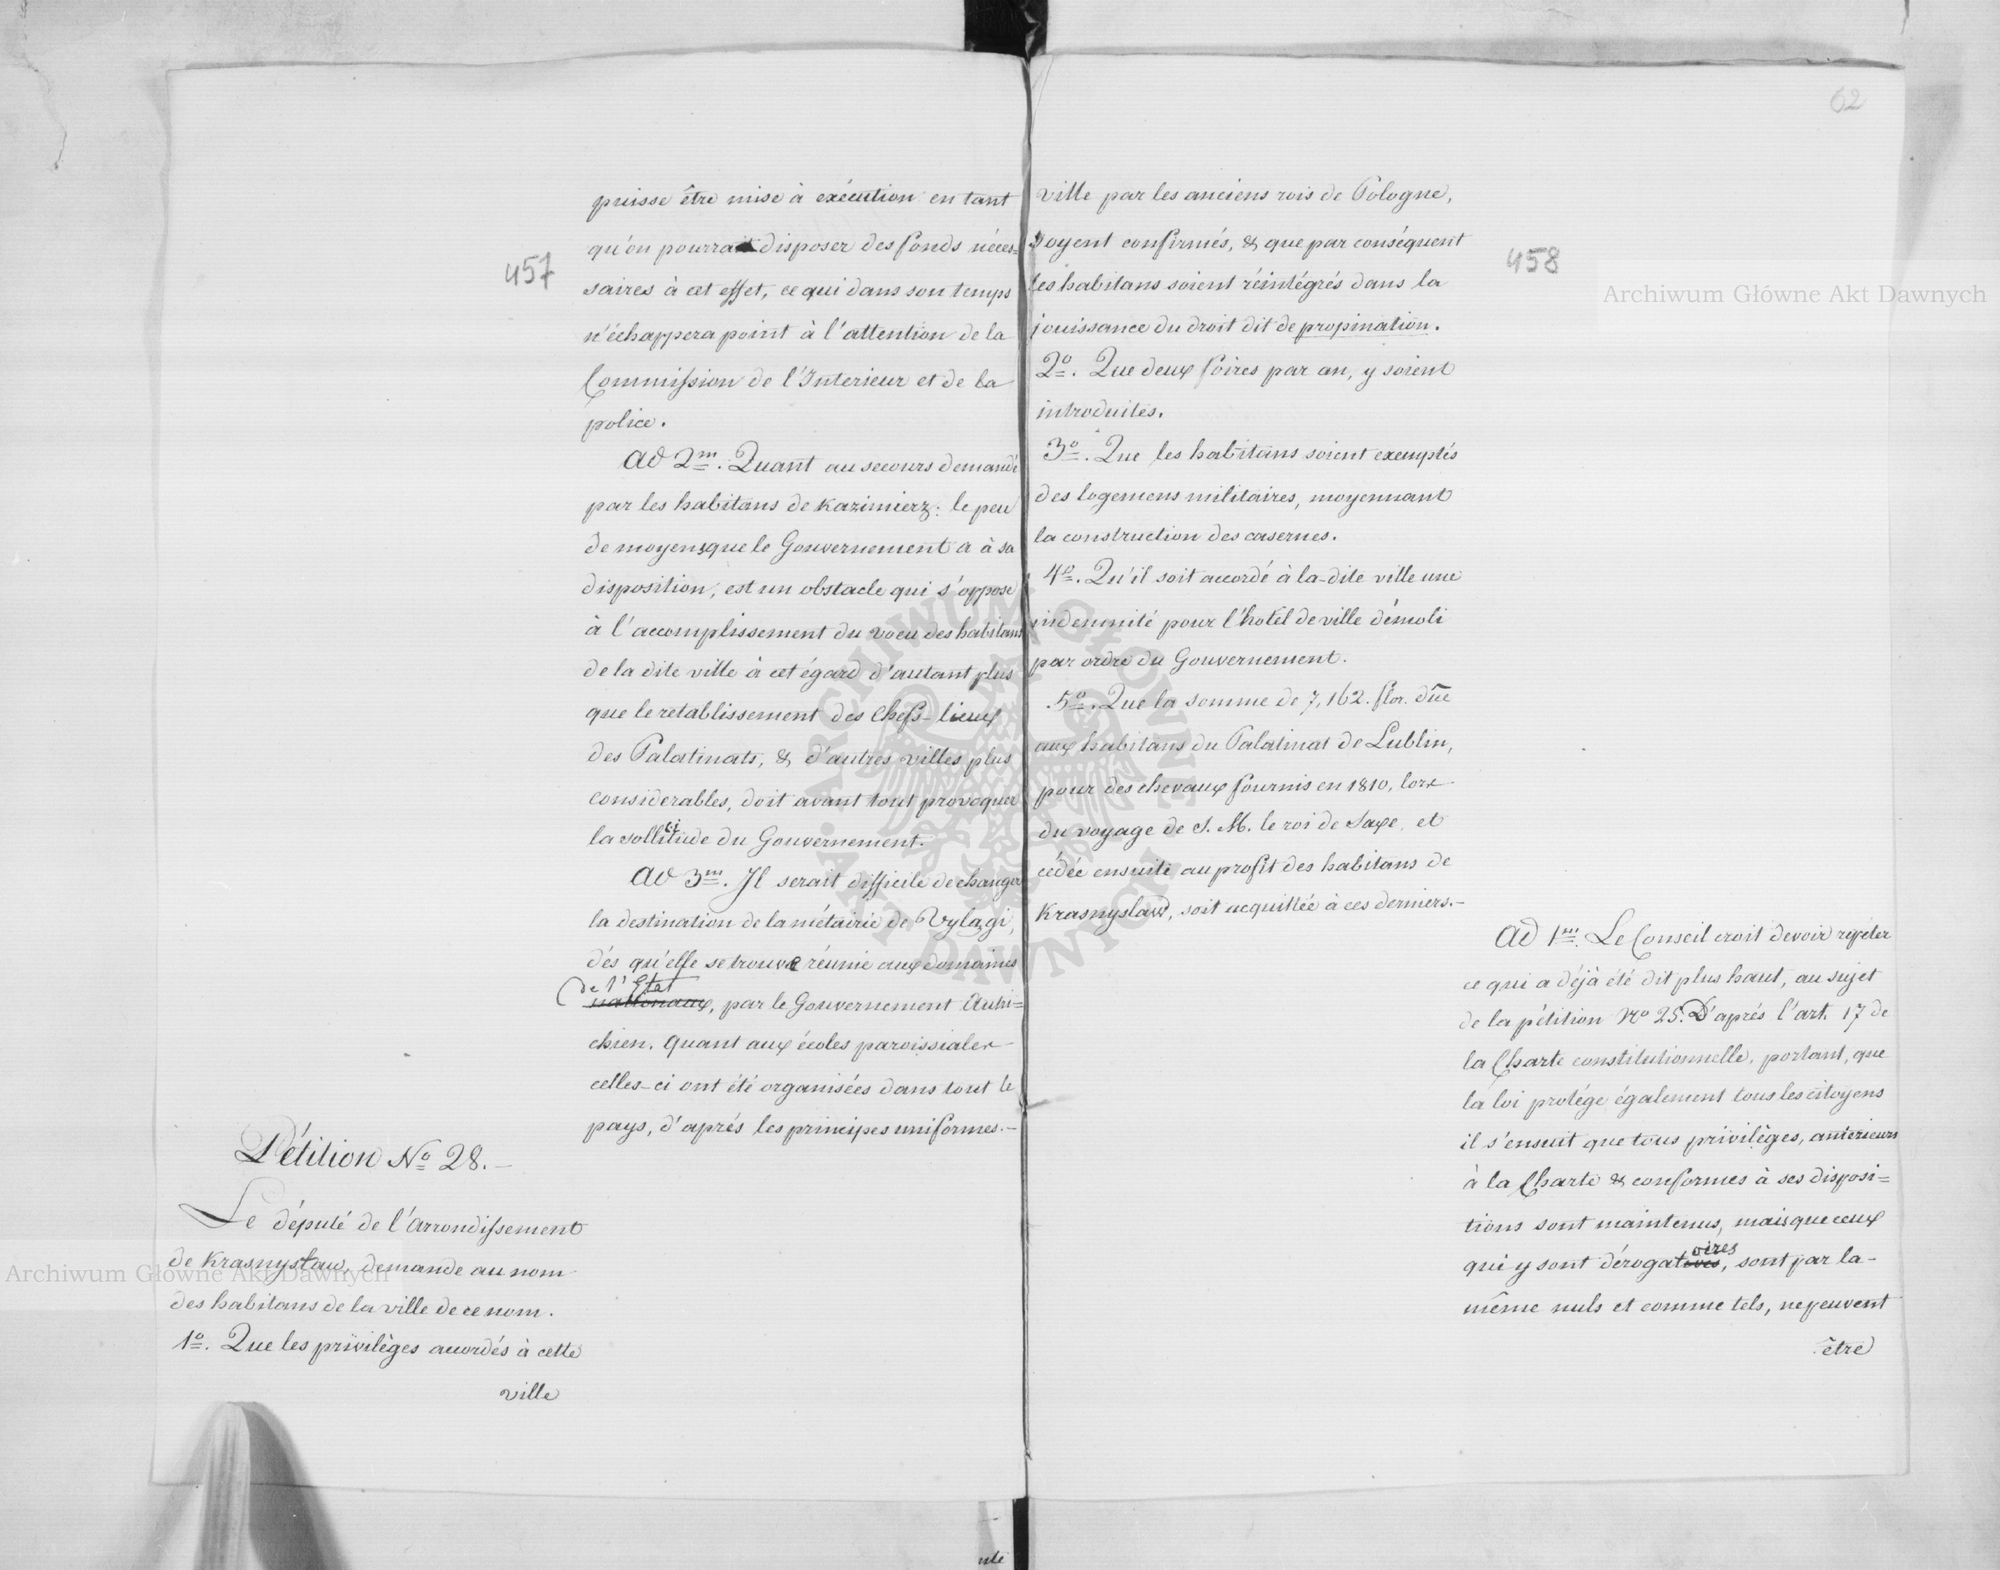 457
puisse être mise à exécution en tant
qu'on pourrait disposer des fonds néces=
saires à cet effet, ce qui dans son temps
n'échappera point à l'attention de la
Commission de l'Interieur et de la
police.
Ad 2m. Quant au secours demandé
par les habitans de Kazimierz: le peu
de moyens que le Gouvernement a à sa
disposition, est un obstacle qui s'oppose
à l'accomplissement du voeu des habitans
de la dite ville à cet égard d'autant plus
que le retablissement des Chefs-lieux
des Palatinats, & d'autres villes plus
considerables, doit avant tout provoquer
la sollicitude du Gouvernement.
Ad 3m. Il serait difficile de changer
la destination de la métairie de Vylagi,
dés qu'elle se trouve réunie aux domaines
de l'Etat
nationaux, par le Gouvernement Autri=
chien. Quant aux écoles paroissiales
celles-ci ont été organisées dans tout le
pays, d'aprés les principes uniformes.-
Pétition No 28.-
Le député de l'Arrondissement
de Krasnystaw, demande au nom
des habitans de la ville de ce nom.
1o. Que les privilèges accordés à cette
ville
62
458
ville par les anciens rois de Pologne,
soyent confirmés, & que par conséquent
les habitans soient réintégrés dans la
jouissance du droit dit de propination.
2o. Que deux foires par an, y soient
introduites.
3o. Que les habitans soient exemptés
des logemens militaires, moyennant
la construction des casernes.
4o. Qu'il soit accordé à la-dite ville une
indemnité pour l'hotel de ville démoli
par ordre du Gouvernement.
5o. Que la somme de 7,162. flor. dûe
aux habitans du Palatinat de Lublin,
pour des chevaux fournis en 1810, lors
du voyage de S. M. le roi de Saxe, et
cédée ensuite au profit des habitans de
Krasnyslaw, soit acquittée à ces derniers.-
Ad 1m. Le Conseil croit devoir repéter
ce qui a déjà été dit plus haut, au sujet
de la pétition No 25. D'aprés l'art. 17 de
la Charte constitutionnelle, portant, que
la loi protége également tous les citoyens
il s'ensuit que tous privilèges, anterieurs
à la Charte & conformes à ses disposi=
tions sont maintenus, mais que ceux
qui y sont dérogatoires, sont par la-
même nuls et comme tels, ne peuvent
être
Archiwum Główne Akt Dawnych
Archiwum Główne Akt Dawnych
ARCHIWUM GŁÓWNE AKT DAWNYCH